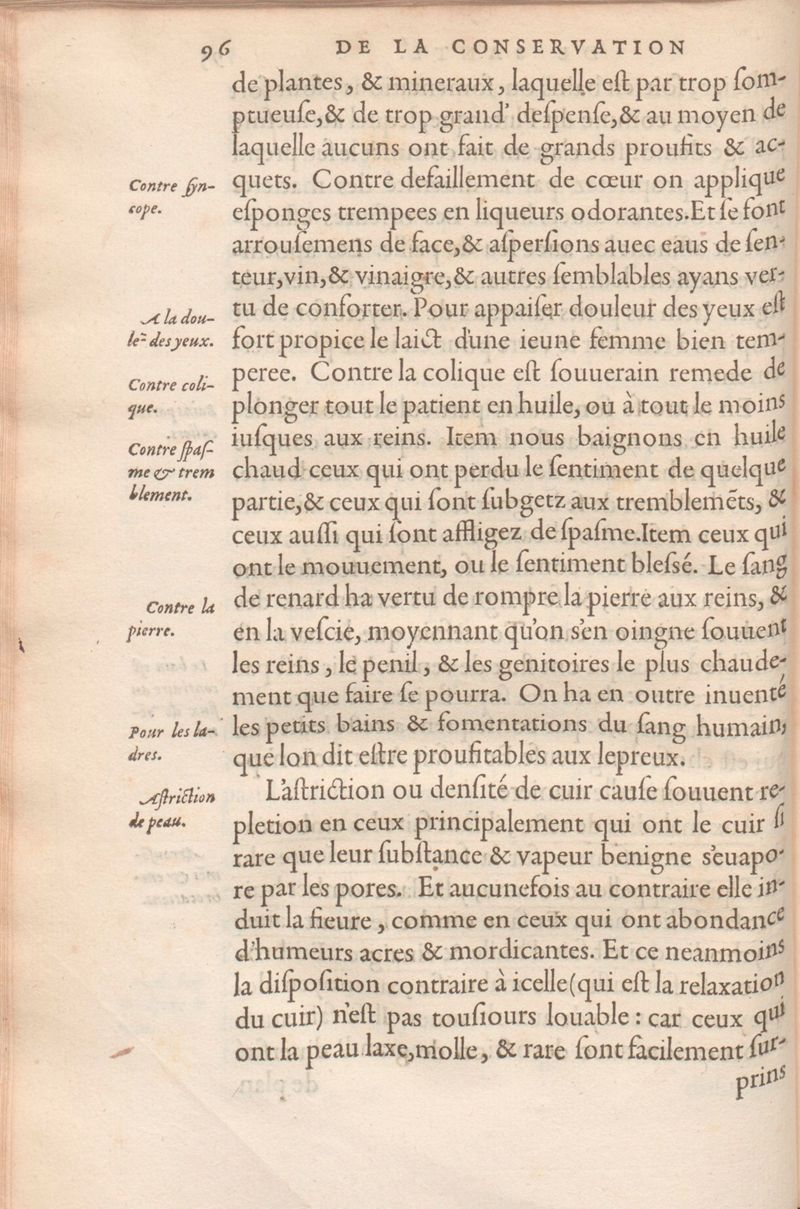 96 DE LA CONSERVATION
de plantes, & mineraux, laquelle eſt par trop ſom-
ptueuſe,& de trop grand' deſpenſe,& au moyen de
laquelle aucuns ont fait de grands proufits & ac-
Contre ſyn-
cope.
quets. Contre defaillement de cœur on applique
eſponges trempees en liqueurs odorantes.Et ſe font
arrouſemens de face,& aſperſions auec eaus de ſen-
teur,vin,& vinaigre,& autres ſemblables ayans ver-
A la dou-
le~ des yeux.
tu de conforter. Pour appaiſer douleur des yeux eſt
fort propice le laict d'une ieune femme bien tem-
Contre coli-
que.
peree. Contre la colique eſt ſouuerain remede de
plonger tout le patient en huile, ou à tout le moins
Contre ſpaſ-
me & trem
blement.
iuſques aux reins. Item nous baignons en huile
chaud ceux qui ont perdu le ſentiment de quelque
partie,& ceux qui ſont ſubgetz aux tremblemẽts, &
ceux auſſi qui ſont affligez de ſpaſme.Item ceux qui
ont le mouuement, ou le ſentiment bleſsé. Le ſang
Contre la
pierre.
de renard ha vertu de rompre la pierre aux reins, &
en la veſcie, moyennant qu'on s'en oingne ſouuent
les reins, le penil, & les genitoires le plus chaude-
ment que faire ſe pourra. On ha en outre inuenté
Pour les la-
dres.
les petits bains & fomentations du ſang humain,
que lon dit eſtre proufitables aux lepreux.
Aſtriction
de peau.
L'aſtriction ou denſité de cuir cauſe ſouuent re-
pletion en ceux principalement qui ont le cuir ſi
rare que leur ſubſtance & vapeur benigne s'euapo-
re par les pores. Et aucunefois au contraire elle in-
duit la fieure, comme en ceux qui ont abondance
d'humeurs acres & mordicantes. Et ce neanmoins
la diſpoſition contraire à icelle(qui eſt la relaxation
du cuir) n'eſt pas touſiours louable: car ceux qui
ont la peau laxe,molle, & rare ſont facilement ſur-
prins